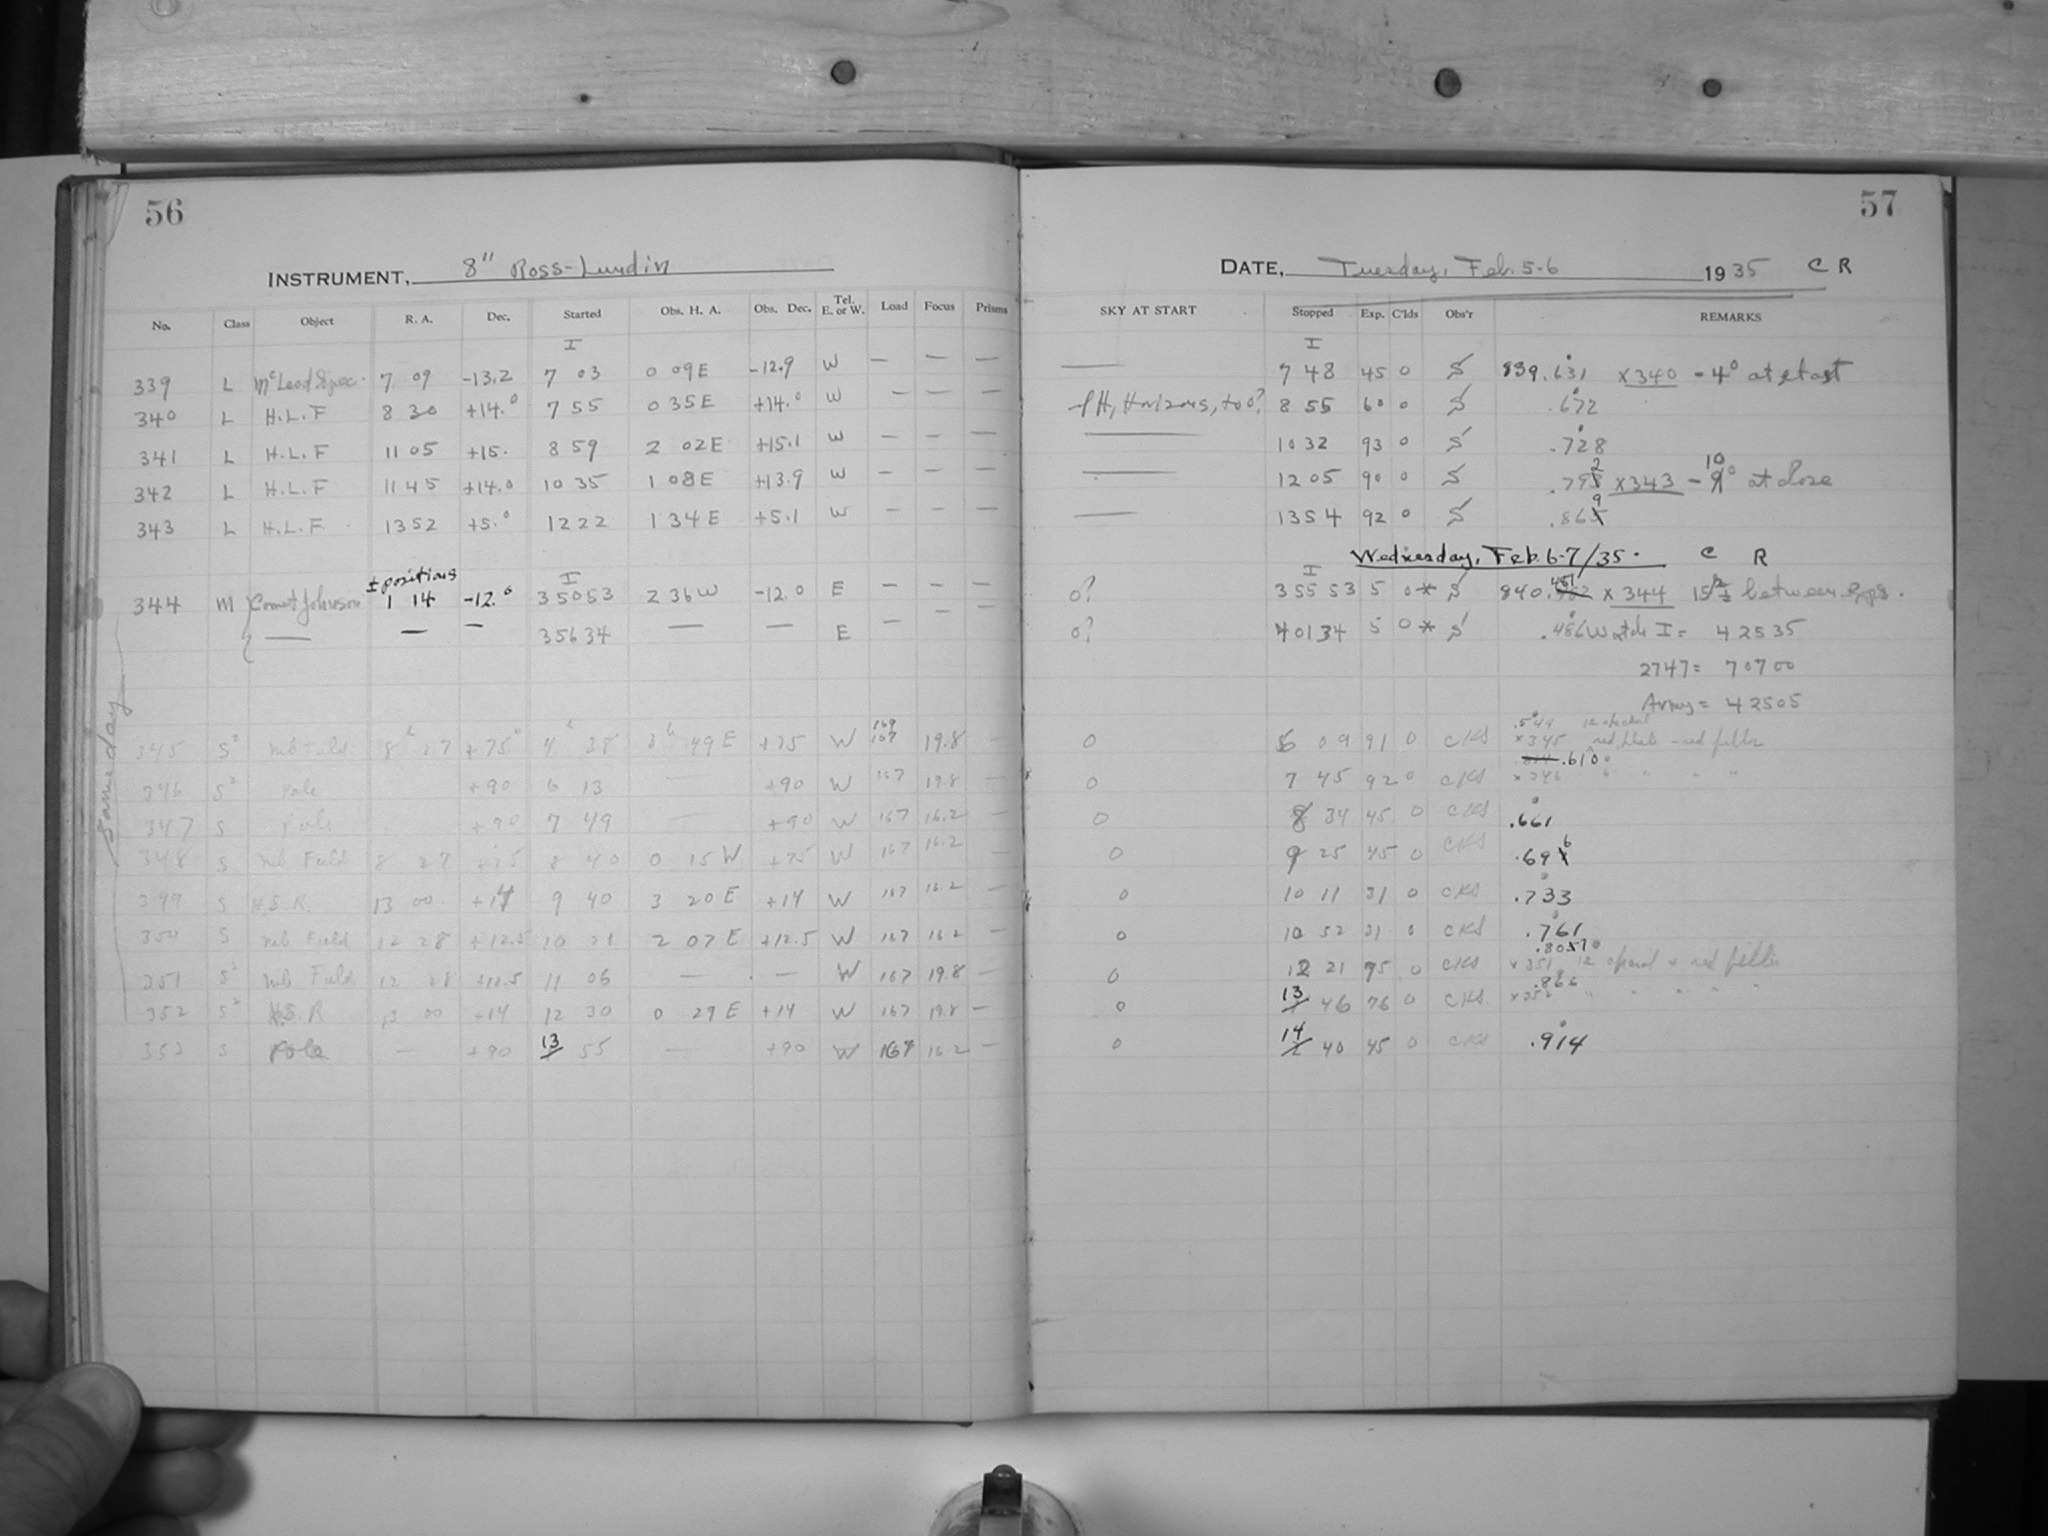 56
57
INSTRUMENT, 8" Ross-Lundin
DATE, Tuesday, Feb. 5-6 1935 C R
No. Class Object R. A. Dec. Started Obs. H. A. Obs. Dec. Tel. E. or W. Load Focus Prisms SKY AT START Stopped Exp. C'lds Obs'r REMARKS
I I
339 L McLeod Spec. 7 09 -13.2 7 03 0 09E -12.9 W — — — — 7 48 45 0 S 839.631 x340 -4° at start
340 L H.L.F 8 30 +14.0 7 55 0 35E +14.0 W — — — Horizons, too? 8 55 60 0 S .672
341 L H.L.F 11 05 +15. 8 59 2 02E +15.1 W — — — — 10 32 93 0 S .728
342 L H.L.F 11 45 +14.0 10 35 1 08E +13.9 W — — — — 12 05 90 0 S .792 x343 -10° at close
343 L H.L.F. 13 52 +5.0 12 22 1 34E +5.1 W — — — — 13 54 92 0 S .869
Wednesday, Feb. 6-7/35. C R
± positions I I
344 M Comet Johnson 1 14 -12.0 3 50 53 2 36W -12.0 E — — — 0? 3 55 53 5 0* S 840. x344 between exps.
— — — 3 56 34 — — E — 0? 4 01 34 5 0* S .486 Watch I = 4 25 35
2747 = 7 07 00
Army = 4 25 05
Same day
345 S2 Mb Field 8h 27 +75° 4h 38 3h 49E +75 W 169 167 19.8 — 0 6 09 91 0 CKS .544 x345 red filter
346 S2 Pole +90 6 13 — +90 W 167 19.8 — 0 7 45 92 0 CKS .610 x346 " " " "
347 S Pole +90 7 49 — +90 W 167 16.2 — 0 8 34 45 0 CKS .661
348 S Mb Field 8 27 +75 8 40 0 15W +75 W 167 16.2 0 9 25 45 0 CKS .696
349 S H.S.R. 13 00 +14 9 40 3 20E +14 W 167 16.2 — 0 10 11 31 0 CKS .733
350 S Mb Field 12 28 +12.5 10 21 2 07E +12.5 W 167 16.2 — 0 10 52 31 0 CKS .761
351 S2 Mb Field 12 28 +12.5 11 06 — — W 167 19.8 — 0 12 21 75 0 CKS x351 red filter
352 S2 H.S.R 13 00 +14 12 30 0 29E +14 W 167 19.8 — 0 13 46 76 0 CKS .866 x352 " " " "
353 S Pole — +90 13 55 — +90 W 167 16.2 — 0 14 40 45 0 CKS .914